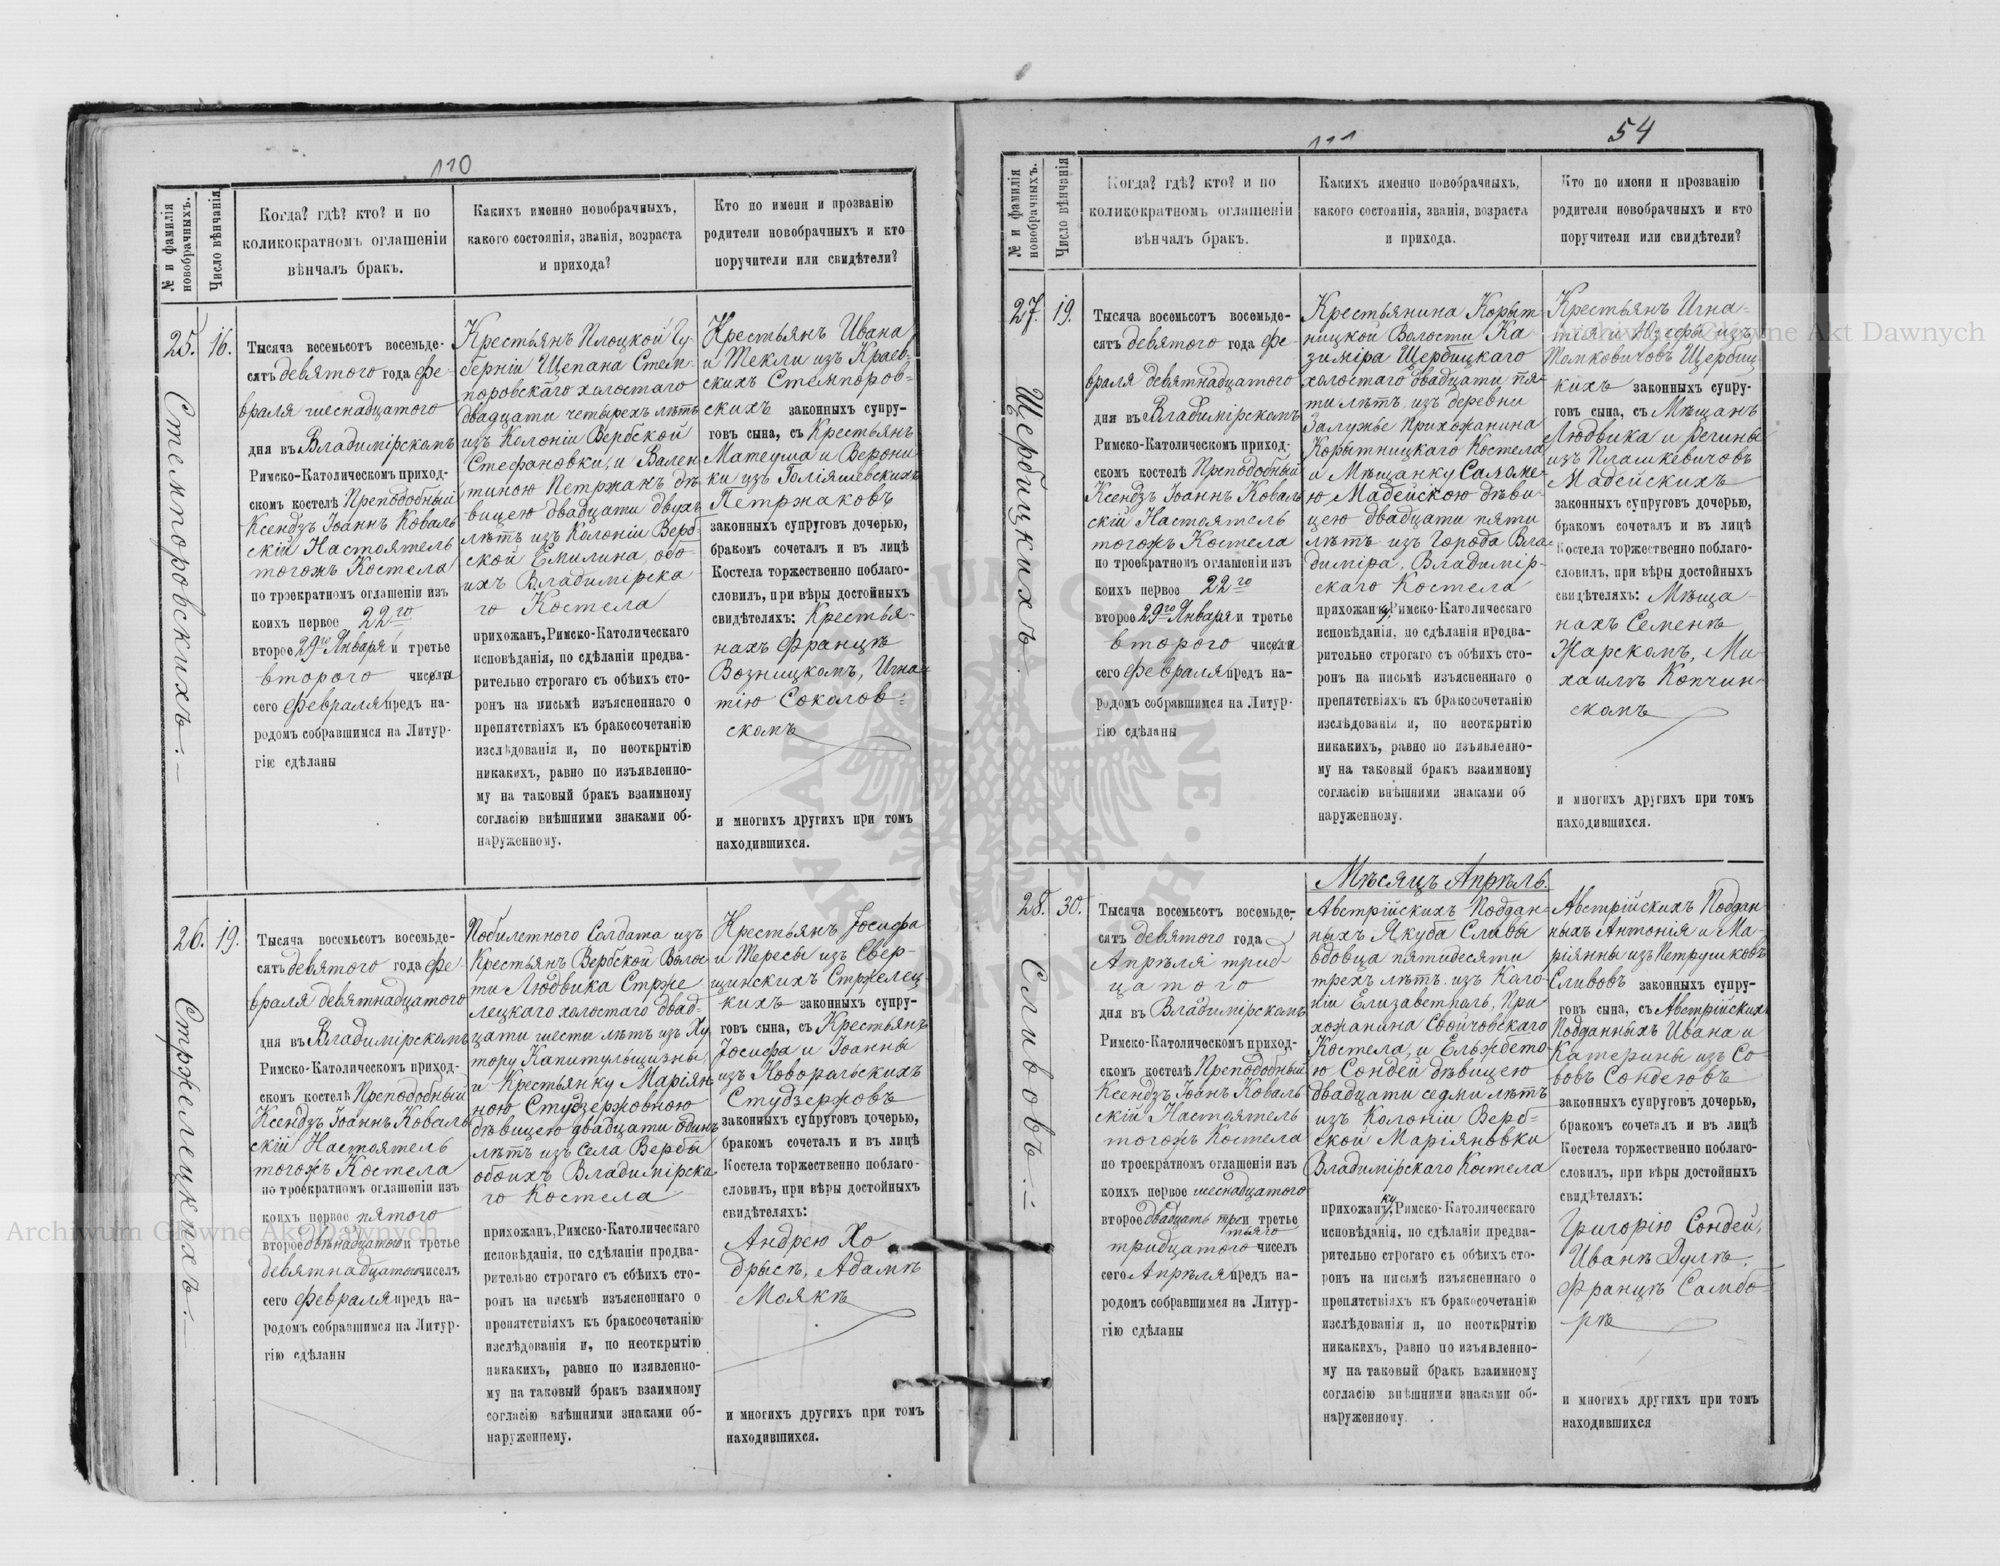 110
№ и фамилія новобрачныхъ.
Число вѣнчанія
Когда? гдѣ? кто? и по
коликократномъ оглашеніи
вѣнчалъ бракъ.
Какихъ именно новобрачныхъ,
какого состоянія, званія, возраста
и прихода?
Кто по имени и прозванію
родители новобрачныхъ и кто
поручители или свидѣтели?
25.
Стемпоровскихъ.
16.
Тысяча восемьсотъ восемьде-
сятъ девятого года Фе-
враля шеснадцатого
дня въ Владимірскомъ
Римско-Католическомъ приход-
скомъ костелѣ Преподобный
Ксендзъ Іоаннъ Коваль
скій Настоятель
тогожъ Костела
по троекратномъ оглашеніи изъ
коихъ первое 22го
второе 29го Января и третье
второго числа
сего Февраля предъ на-
родомъ собравшимся на Литур-
гію сдѣланы
Крестьянъ Плоцкой Гу-
берніи Щепана Стем-
поровскаго холостаго
двадцати четырехъ лѣтъ
изъ Колоніи Вербской
Стефановки, и Вален
тиною Петржакъ дѣ
вицею двадцати двухъ
лѣтъ изъ Колоніи Верб-
ской Емилина, обо-
ихъ Владимірска
го Костела
прихожан, Римско-Католическаго
исповѣданія, по сдѣланіи предва-
рительно строгаго съ обѣихъ сто-
ронъ на письмѣ изъясненнаго о
препятствіяхъ къ бракосочетанію
изслѣдованія и, по неоткрытію
никакихъ, равно по изъявленно-
му на таковый бракъ взаимному
согласію внѣшними знаками об-
наруженному.
Крестьянъ Ивана
и Текли изъ Краев-
скихъ Стемпоров-
скихъ законныхъ супру-
говъ сына, съ Крестьянъ
Матеуша и Верони
ки изъ Голіяшевскихъ
Петржаковъ
законныхъ супруговъ дочерью,
бракомъ сочеталъ и въ лицѣ
Костела торжественно поблаго-
словилъ, при вѣры достойныхъ
свидѣтеляхъ: Крестья-
нахъ Францѣ
Возницкомъ, Игна-
тію Соколов-
скомъ
и многихъ другихъ при томъ
находившихся.
26.
Стржелецкихъ.
19.
Тысяча восемьсотъ восемьде-
сятъ девятого года Фе-
враля девятнадцатого
дня въ Владимірскомъ
Римско-Католическомъ приход-
скомъ костелѣ Преподобный
Ксендзъ Іоаннъ Коваль
скій Настоятель
тогожъ Костела
по троекратномъ оглашеніи изъ
коихъ первое пятого
второе двѣнадцатого и третье
девятнадцатого числъ
сего Февраля предъ на-
родомъ собравшимся на Литур-
гію сдѣланы
Побилетного Солдата изъ
Крестьянъ Вербской Волос
ти Людвика Стрже
лецкаго холостаго двад-
цати шести лѣтъ изъ Ху
тору Капитульщизны,
и Крестьянку Маріян
ною Студзержовною
дѣвицею двадцати одинъ
лѣтъ изъ Села Вербы
обоихъ Владимірска
го Костела
прихожан, Римско-Католическаго
исповѣданія, по сдѣланіи предва-
рительно строгаго съ сбѣихъ сто-
ронъ на письмѣ изъясненнаго о
препятствіяхъ къ бракосочетанію
изслѣдованія и, по неоткрытію
никакихъ, равно по изявленно-
му на таковый бракъ взаимному
согласію внѣшними знаками об-
наруженнему.
Крестьянъ Іосифа
и Тересы изъ Свер-
щинскихъ Стржелец-
кихъ законныхъ супру-
говъ сына, съ Крестьянъ
Іосифа и Іоанны
изъ Коворальскихъ
Студзержовъ
законныхъ супруговъ дочерью,
бракомъ сочеталъ и въ лицѣ
Костела торжественно поблаго-
словилъ, при вѣры достойныхъ
свидѣтеляхъ:
Андрею Хо
дрысѣ, Адамѣ
Моякѣ
и многихъ другихъ при томъ
находившихся.
54
111
№ и фамилія новобрачныхъ.
Число вѣнчанія
Когда? гдѣ? кто? и по
коликократномъ оглашеніи
вѣнчалъ бракъ.
Какихъ именно новобрачныхъ,
какого состоянія, званія, возраста
и прихода.
Кто по имени и прозванію
родители новобрачныхъ и кто
поручители или свидѣтели?
27.
Щербицкихъ.
19.
Тысяча восемьсотъ восемьде-
сятъ девятого года Фе-
враля девятнадцатого
дня въ Владимірскомъ
Римско-Католическомъ приход-
скомъ костелѣ Преподобный
Ксендзъ Іоаннъ Коваль
скій Настоятель
тогожъ Костела
по троекратномъ оглашеніи изъ
коихъ первое 22го
второе 29го Января и третье
второго числа
сего Февраля предъ на-
родомъ собравшимся на Литур-
гію сдѣланы
Крестьянина Корыт
ницкой Волости Ка-
зиміра Щербицкаго
холостаго двадцати пя-
ти лѣтъ изъ деревни
Залужье Прихожанина
Корытницкаго Костела
и Мѣщанку Саломе-
ю Мадейскою дѣви-
цею двадцати пяти
лѣтъ изъ Города Вла-
диміра, Владимір-
скаго Костела
прихожан, Римско-Католическаго
исповѣданія, по сдѣланіи предва-
рительно строгаго съ обѣихъ сто-
ронъ на письмѣ изъясненнаго о
препятствіяхъ къ бракосочетанію
изслѣдованія и, по неоткрытію
никакихъ, равно по изъявленно-
му на таковый бракъ взаимному
согласію внѣшними знаками об
наруженному.
Крестьянъ Игна-
тія и Юзефы изъ
Томковичовъ Щербиц
кихъ законныхъ супру-
говъ сына, съ Мѣщанъ
Людвика и Регины
изъ Плашкевичовъ
Мадейскихъ
законныхъ супруговъ дочерью,
бракомъ сочеталъ и въ лицѣ
Костела торжественно поблаго-
словилъ, при вѣры достойныхъ
свидѣтеляхъ: Мѣща-
нахъ Семенѣ
Жарскомъ, Ми-
хаилѣ Копчин-
скомъ
и многихъ другихъ при томъ
находившихся.
Мѣсяцъ Апрѣль.
28.
Сливовъ.
30.
Тысяча восемьсотъ восемьде-
сятъ девятого года
Апрѣля трид-
цатого
дня въ Владимірскомъ
Римско-Католическомъ приход-
скомъ костелѣ Преподобный
Ксендзъ Іоанъ Коваль
скій Настоятель
тогожъ Костела
по троекратномъ оглашеніи изъ
коихъ первое шеснадцатого
второе двадцать третьяго и третье
тридцатого числъ
сего Апрѣля предъ на-
родомъ собравшимся на Литур-
гію сдѣланы
Австрійскихъ Поддан-
ныхъ Якуба Сливы
вдовца пятидесяти
трехъ лѣтъ изъ Коло-
ніи Елизаветполь, При
хожанина Свойчовскаго
Костела, и Ельжбето-
ю Сондей дѣвицею
двадцати седми лѣтъ
изъ Колоніи Верб-
ской Маріяновки
Владимірскаго Костела
прихожанку, Римско-Католическаго
исповѣданія, по сдѣланіи предва-
рительно строгаго съ обѣихъ сто-
ронъ на письмѣ изъясненнаго о
препятствіяхъ къ бракосочетанію
изслѣдованія и, по неоткрытію
никакихъ, равно по изъявленно-
му на таковый бракъ взаимному
согласію внѣшними знаками об-
наруженному
Австрійскихъ Поддан-
ныхъ Антонія и Ма-
ріянны изъ Петрушковъ
Сливовъ законныхъ супру-
говъ сына, съ Австрійскихъ
Подданныхъ Ивана и
Катерины изъ Со-
вовъ Сондеювъ
законныхъ супруговъ дочерью,
бракомъ сочеталъ и въ лицѣ
Костела торжественно поблаго-
словилъ, при вѣры достойныхъ
свидѣтеляхъ:
Григорію Сондей,
Иванѣ Дулѣ,
Францѣ Самбо-
рѣ
и многихъ другихъ при томъ
находившихся
Archiwum Główne Akt Dawnych
Archiwum Główne Akt Dawnych